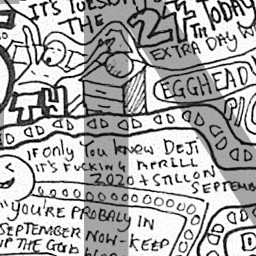 IT'S TUESDAY
THE
24TH
TODAY
EXTRA DAY
EGGHEAD
TH
IF ONLY YOU KNEW DEJI
IT'S FUCKING APRILL
2020 + STILL ON
SEPTEMB
"YOU'RE PROBALY IN
SEPTEMBER NOW - KEEP
UP THE GOOD